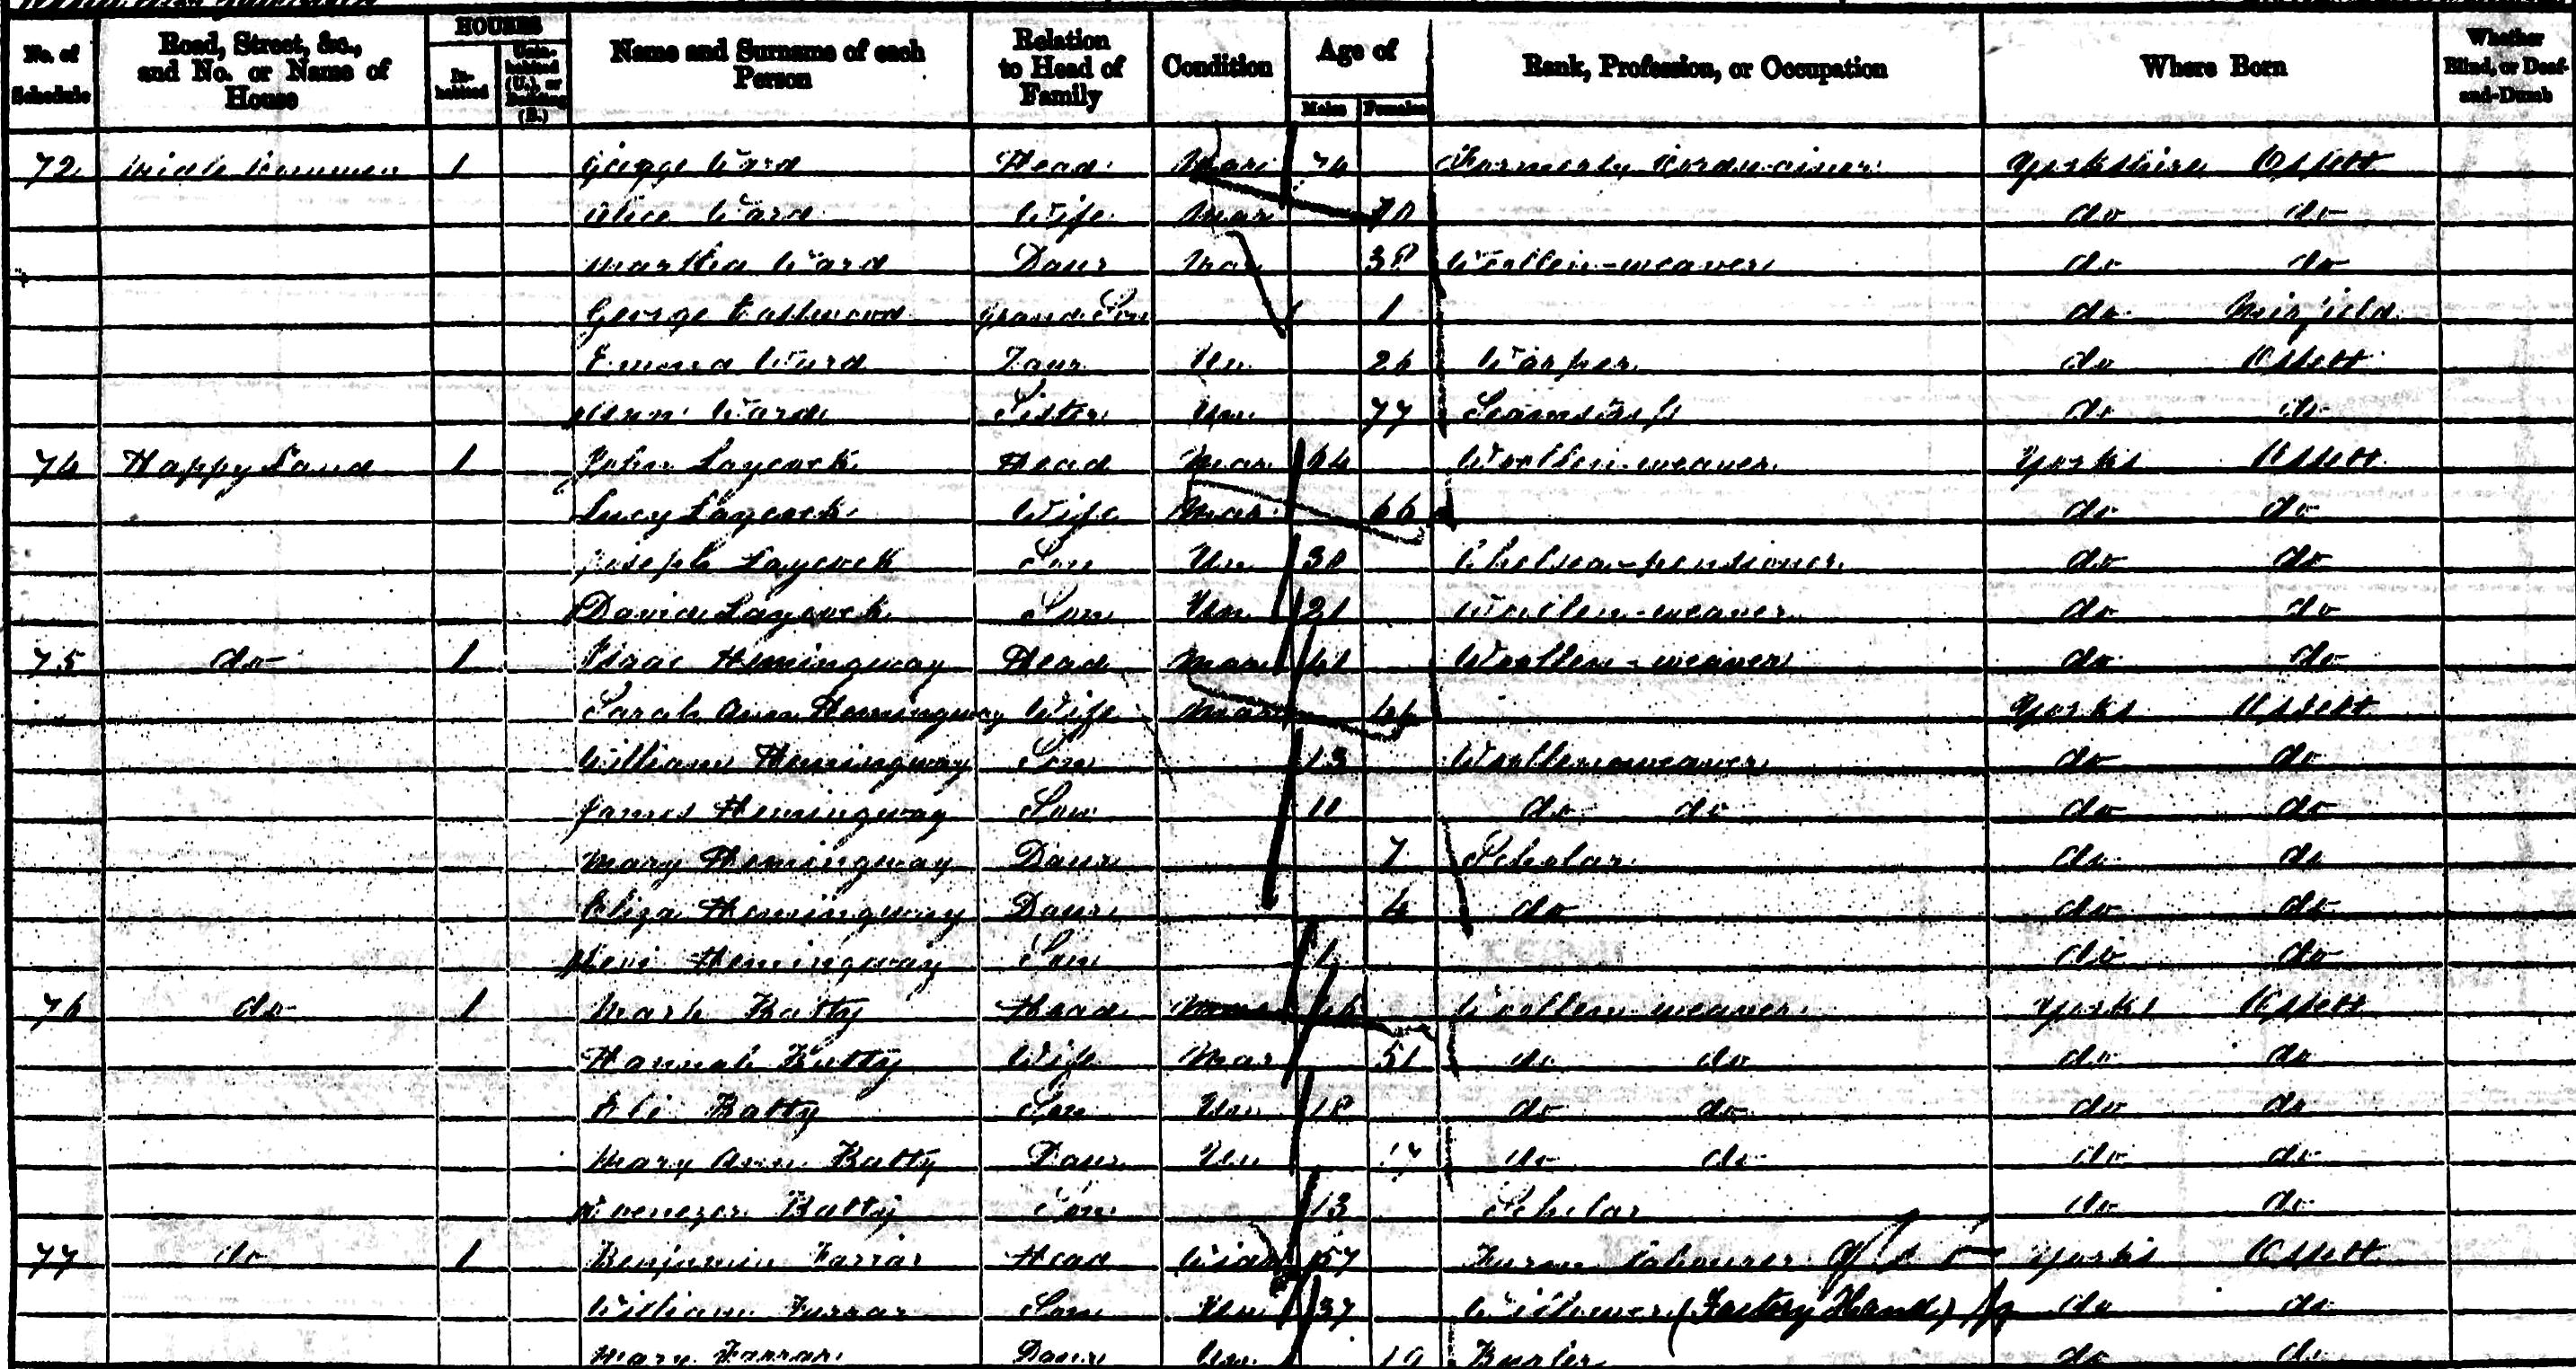 No. of Schedule Road, Street, &c., and No. or Name of House HOUSES In-habited Unin-habited (U.), or Building (B.) Name and Surname of each Person Relation to Head of Family Condition Age of Males Females Rank, Profession, or Occupation Where Born Whether Blind, or Deaf-and-Dumb
72 1 George Ward Head Mar 74 Formerly Cordwainer Yorkshire Ossett
Alice Ward Wife Mar 70 do do
Martha Ward Daur Mar 38 Woollen-weaver do do
George Eastwood Grand Son 1 do Mirfield
Emma Ward Daur Un 26 Warper do Ossett
Ann Ward Sister Un 77 do do
74 Happy Land 1 John Laycock Head Mar 64 Woollen-weaver Yorks Ossett
Lucy Laycock Wife Mar 66 do do
Joseph Laycock Son Un 30 Chelsea-pensioner do do
David Laycock Son Un 21 Woollen-weaver do do
75 do 1 Isaac Hemingway Head Mar 41 Woollen-weaver do do
Sarah Ann Hemingway Wife Mar 44 Yorks Ossett
William Hemingway Son 13 Woollen-weaver do do
James Hemingway Son 11 do do do do
Mary Hemingway Daur 7 Scholar do do
Eliza Hemingway Daur 4 do do do
Levi Hemingway Son 1 do do
76 do 1 Mark Batty Head Mar 46 Woollen-weaver Yorks Ossett
Hannah Batty Wife Mar 51 do do do do
Eli Batty Son Un 18 do do do do
Mary Ann Batty Daur Un 17 do do do do
Ebenezer Batty Son 13 Scholar do do
77 do 1 Benjamin Farrar Head Widr 57 Farm labourer Yorks Ossett
William Farrar Son Un 37 Willower (Factory Hand) do do
Mary Farrar Daur Un 19 Burler do do